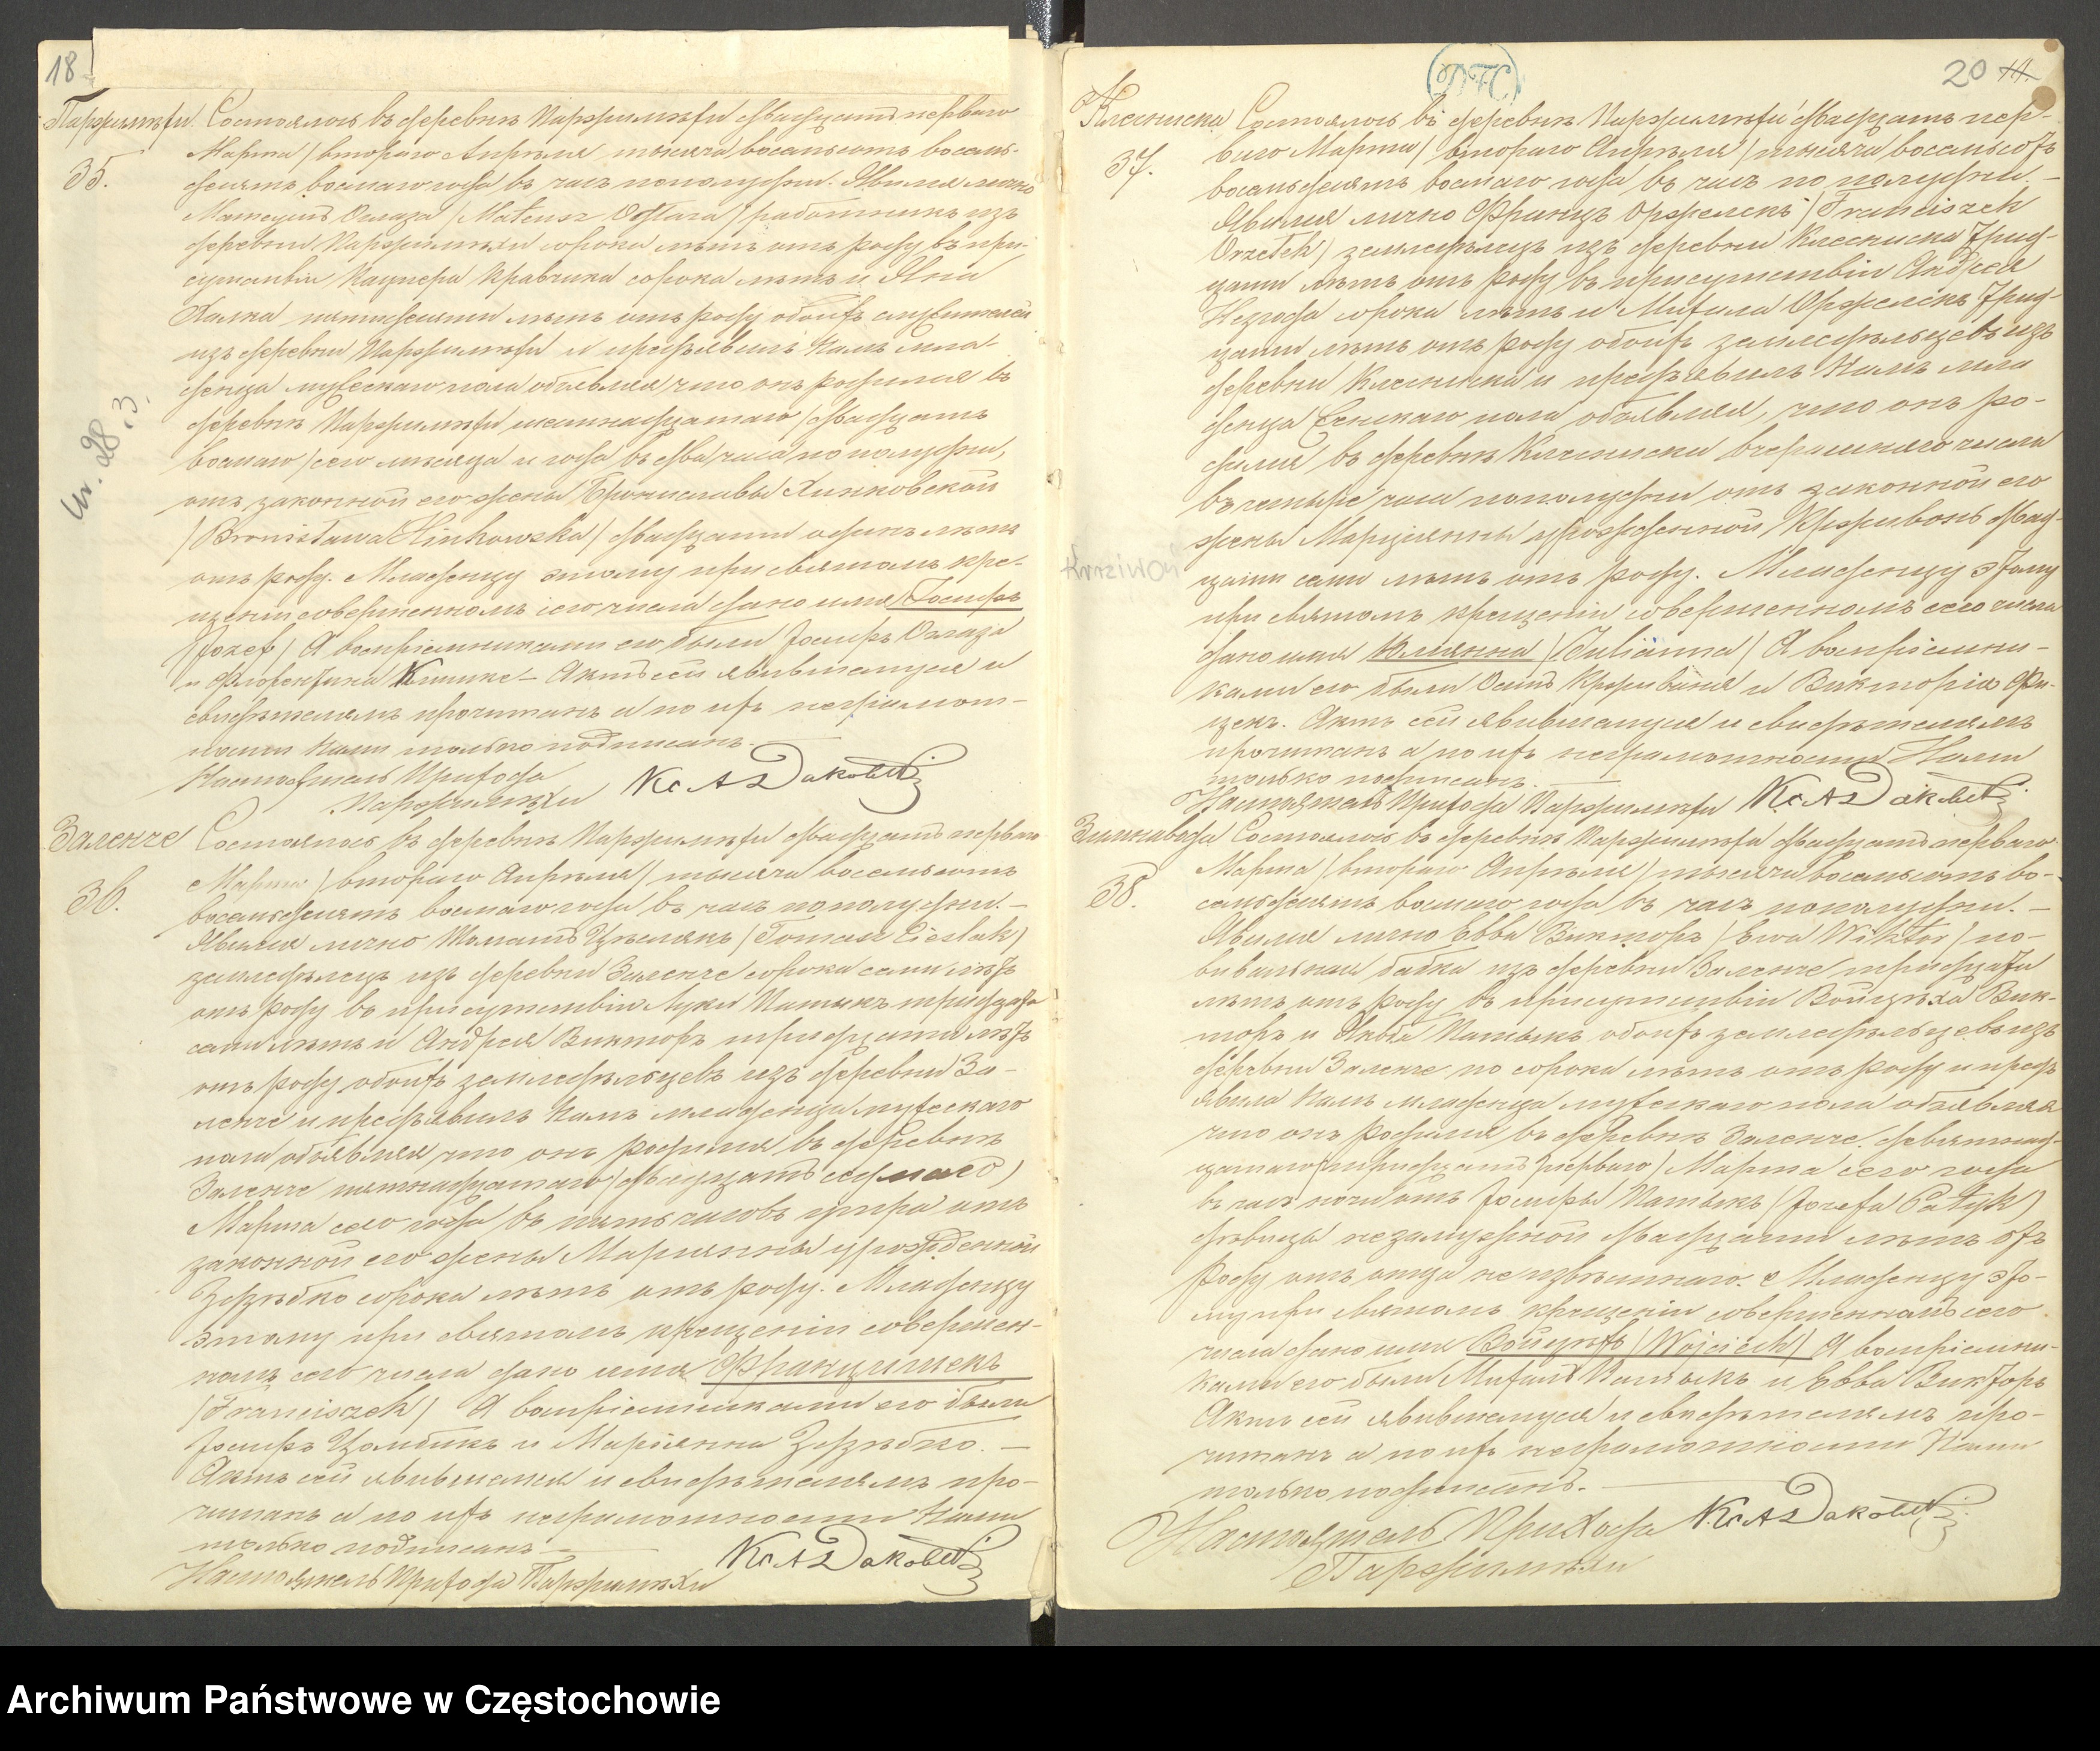 18
Паржимѣхи Состоялось въ деревнѣ Паржимѣхи двадцать перваго
35. Марта /втораго Апрѣля тысяча восемьсотъ восемь-
десятъ восьмаго года въ часъ пополудни. Явился лично
Матеушъ Оглаза /Mateusz Ogłaza/ работникъ изъ
деревни Паржимѣхи сорока лѣтъ отъ роду въ при-
сутствіи Кацпера Кравчика сорока лѣтъ и Яна
Халка пятидесяти лѣтъ отъ роду обоихъ
изъ деревни Паржимѣхи и предъявилъ Намъ мла-
денца мужескаго пола объявляя что онъ родился въ
деревнѣ Паржимѣхи шестнадцатаго /двадцать
восьмаго/ сего мѣсяца и года въ два часа пополудни,
отъ законной его жены Брониславы Хинковской
/Bronisława Hinkowska/ двадцати одинъ лѣтъ
отъ роду. Младенцу этому при святомъ кре-
щеніи совершенномъ сего числа дано имя /Госифъ
/Józef/ А воспріемниками его были Іосифъ Оглаза
и Флорентина Актъ сей явившемуся и
свидѣтелямъ прочитанъ а по ихъ неграмот-
ности Нами только подписанъ.
Настоятель Прихода
Паржимѣхи Кс АДаковски
Ur. 28.3.
Заленче Состоялось въ деревнѣ Паржимѣхи двадцать перваго
36. Марта /втораго Апрѣля/ тысяча восемьсотъ
восемьдесятъ восьмаго года въ часъ пополудни. —
Явился лично Томашъ Цѣслякъ (Tomasz Cieślak)
земледѣлецъ изъ деревни Заленче сорока семи лѣтъ
отъ роду въ присутствіи Луки Патыкъ тридцати
семи лѣтъ и Андрея Викторъ тридцати лѣтъ
отъ роду обоихъ земледѣльцевъ изъ деревни За-
ленче и предъявилъ Намъ младенца мужескаго
пола объявляя что онъ родился въ деревнѣ
Заленче пятнадцатаго (двадцать седмаго)
Марта сего года въ пять часовъ утра отъ
законной его жены Маріянны урожденной
сорока лѣтъ отъ роду. Младенцу
этому при святомъ крещеніи совершен-
номъ сего числа дано имя Францишекъ
/Franciszek/ А воспріемниками его были
Іосифъ и Маріянна —
Актъ сей явившемуся и свидѣтелямъ про-
читанъ а по ихъ неграмотности Нами
только подписанъ. —
Настоятель Прихода Паржимѣхи Кс АДаковски
20 11.
Клесниска Состоялось въ деревнѣ Паржимѣхи двадцать пер-
37. ваго Марта/ втораго Апрѣля /тысяча восемьсотъ
восемьдесятъ восьмаго года въ часъ по полудни. —
Явился лично Францъ Оржелекъ /Franciszek
Orzełek/ земледѣлецъ изъ деревни Клесниска трид-
цати лѣтъ отъ роду въ присутствіи Андрея
Незгода сорока лѣтъ и Михала Оржелекъ трид-
цати лѣтъ отъ роду обоихъ земледѣльцевъ изъ
деревни Клесниска и предъявилъ Намъ мла
денца женскаго пола объявляя, что онъ ро-
дился въ деревнѣ Клесниска вчерашняго числа
въ четыре часа пополудни отъ законной его
жены Марціянны урожденной Крживонь двад-
цати семи лѣтъ отъ роду. Младенцу этому
при святомъ крещеніи совершенномъ сего числа
дано имя Юліянна /Julianna/ А воспріемни-
ками его были Осипъ и Викторія Фи-
цекъ. Актъ сей явившемуся и свидѣтелямъ
прочитанъ а по ихъ неграмотности Нами
только подписанъ.
Настоятель Прихода Паржимѣхи Кс АДаковски
Состоялось въ деревнѣ Паржимѣхи двадцать перваго
38. Марта /втораго Апрѣля/ тысяча восемьсотъ во-
семьдесятъ восьмаго года въ часъ пополудни. —
Явилася лично Евва Викторъ /Ewa Wiktor/ по-
вивальная бабка изъ деревни Заленче тридцати
лѣтъ отъ роду въ присутствіи Войцѣха Вик-
торъ и Якова Патыкъ обоихъ земледѣльцевъ изъ
деревни Заленче по сорока лѣтъ отъ роду и предъ
явила Намъ младенца мужескаго пола объявляя
что онъ родился въ деревнѣ Заленче девятнад-
цатаго /тридцать перваго/ Марта сего года
въ часъ ночи отъ Іосифы Патыкъ /Józefa Patyk/
дѣвицы незамужной двадцати лѣтъ отъ
роду отъ отца неизвѣстнаго. Младенцу это-
му при святомъ крещеніи совершенномъ сего
числа дано имя Войцѣхъ /Wojciech/ А воспріемни-
ками его были Михалъ Патыкъ и Евва Викторъ
Актъ сей явившемуся и свидѣтелямъ про-
читанъ а по ихъ неграмотности Нами
только подписанъ. —
Настоятель Прихода Кс АДаковски
Паржимѣхи
Archiwum Państwowe w Częstochowie